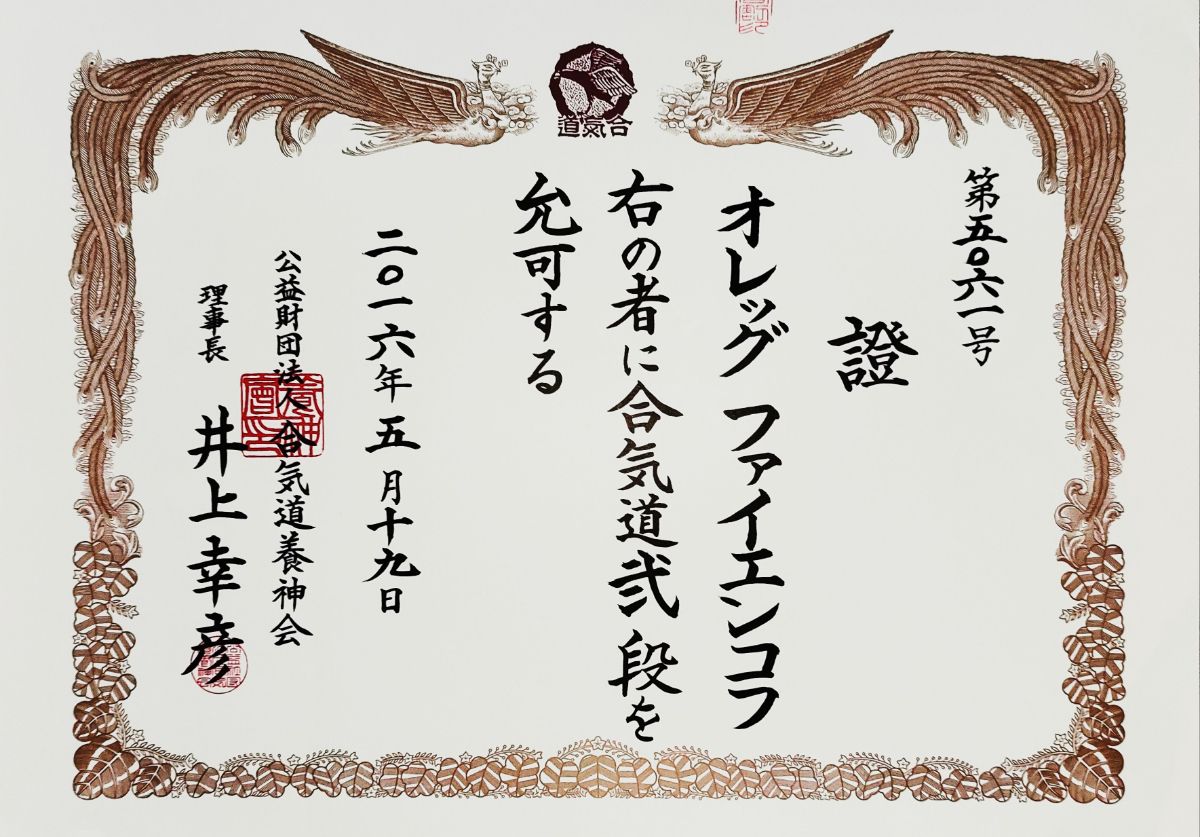 道氣合
第五〇六一号
證
オレッグ ファイエンコフ
右の者に合気道弐段を
允可する
二〇一六年五月十九日
公益財団法人合気道養神会
理事長 井上幸彦